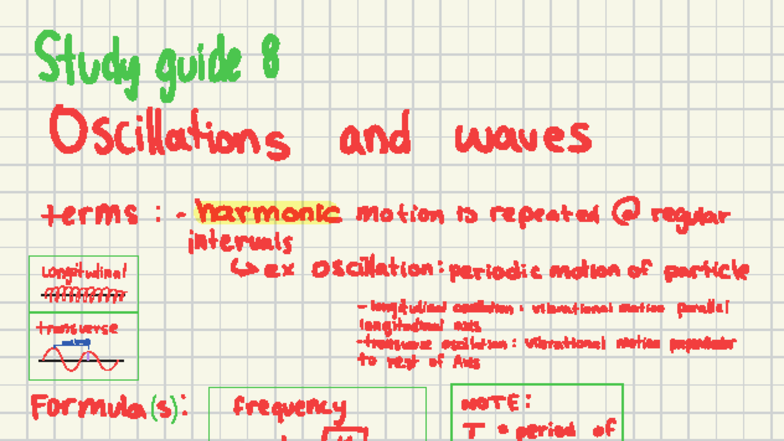 Study guide 8
Oscillations and waves
terms : - harmonic motion is repeated @ regular
intervals
↳ ex oscillation: periodic motion of particle
longitudinal
- longitudinal oscillation : vibrational motion parallel
longitudinal axis
transverse
- transverse oscillation : vibrational motion
to rest of Axis
Formula(s):
frequency
NOTE:
T = period of